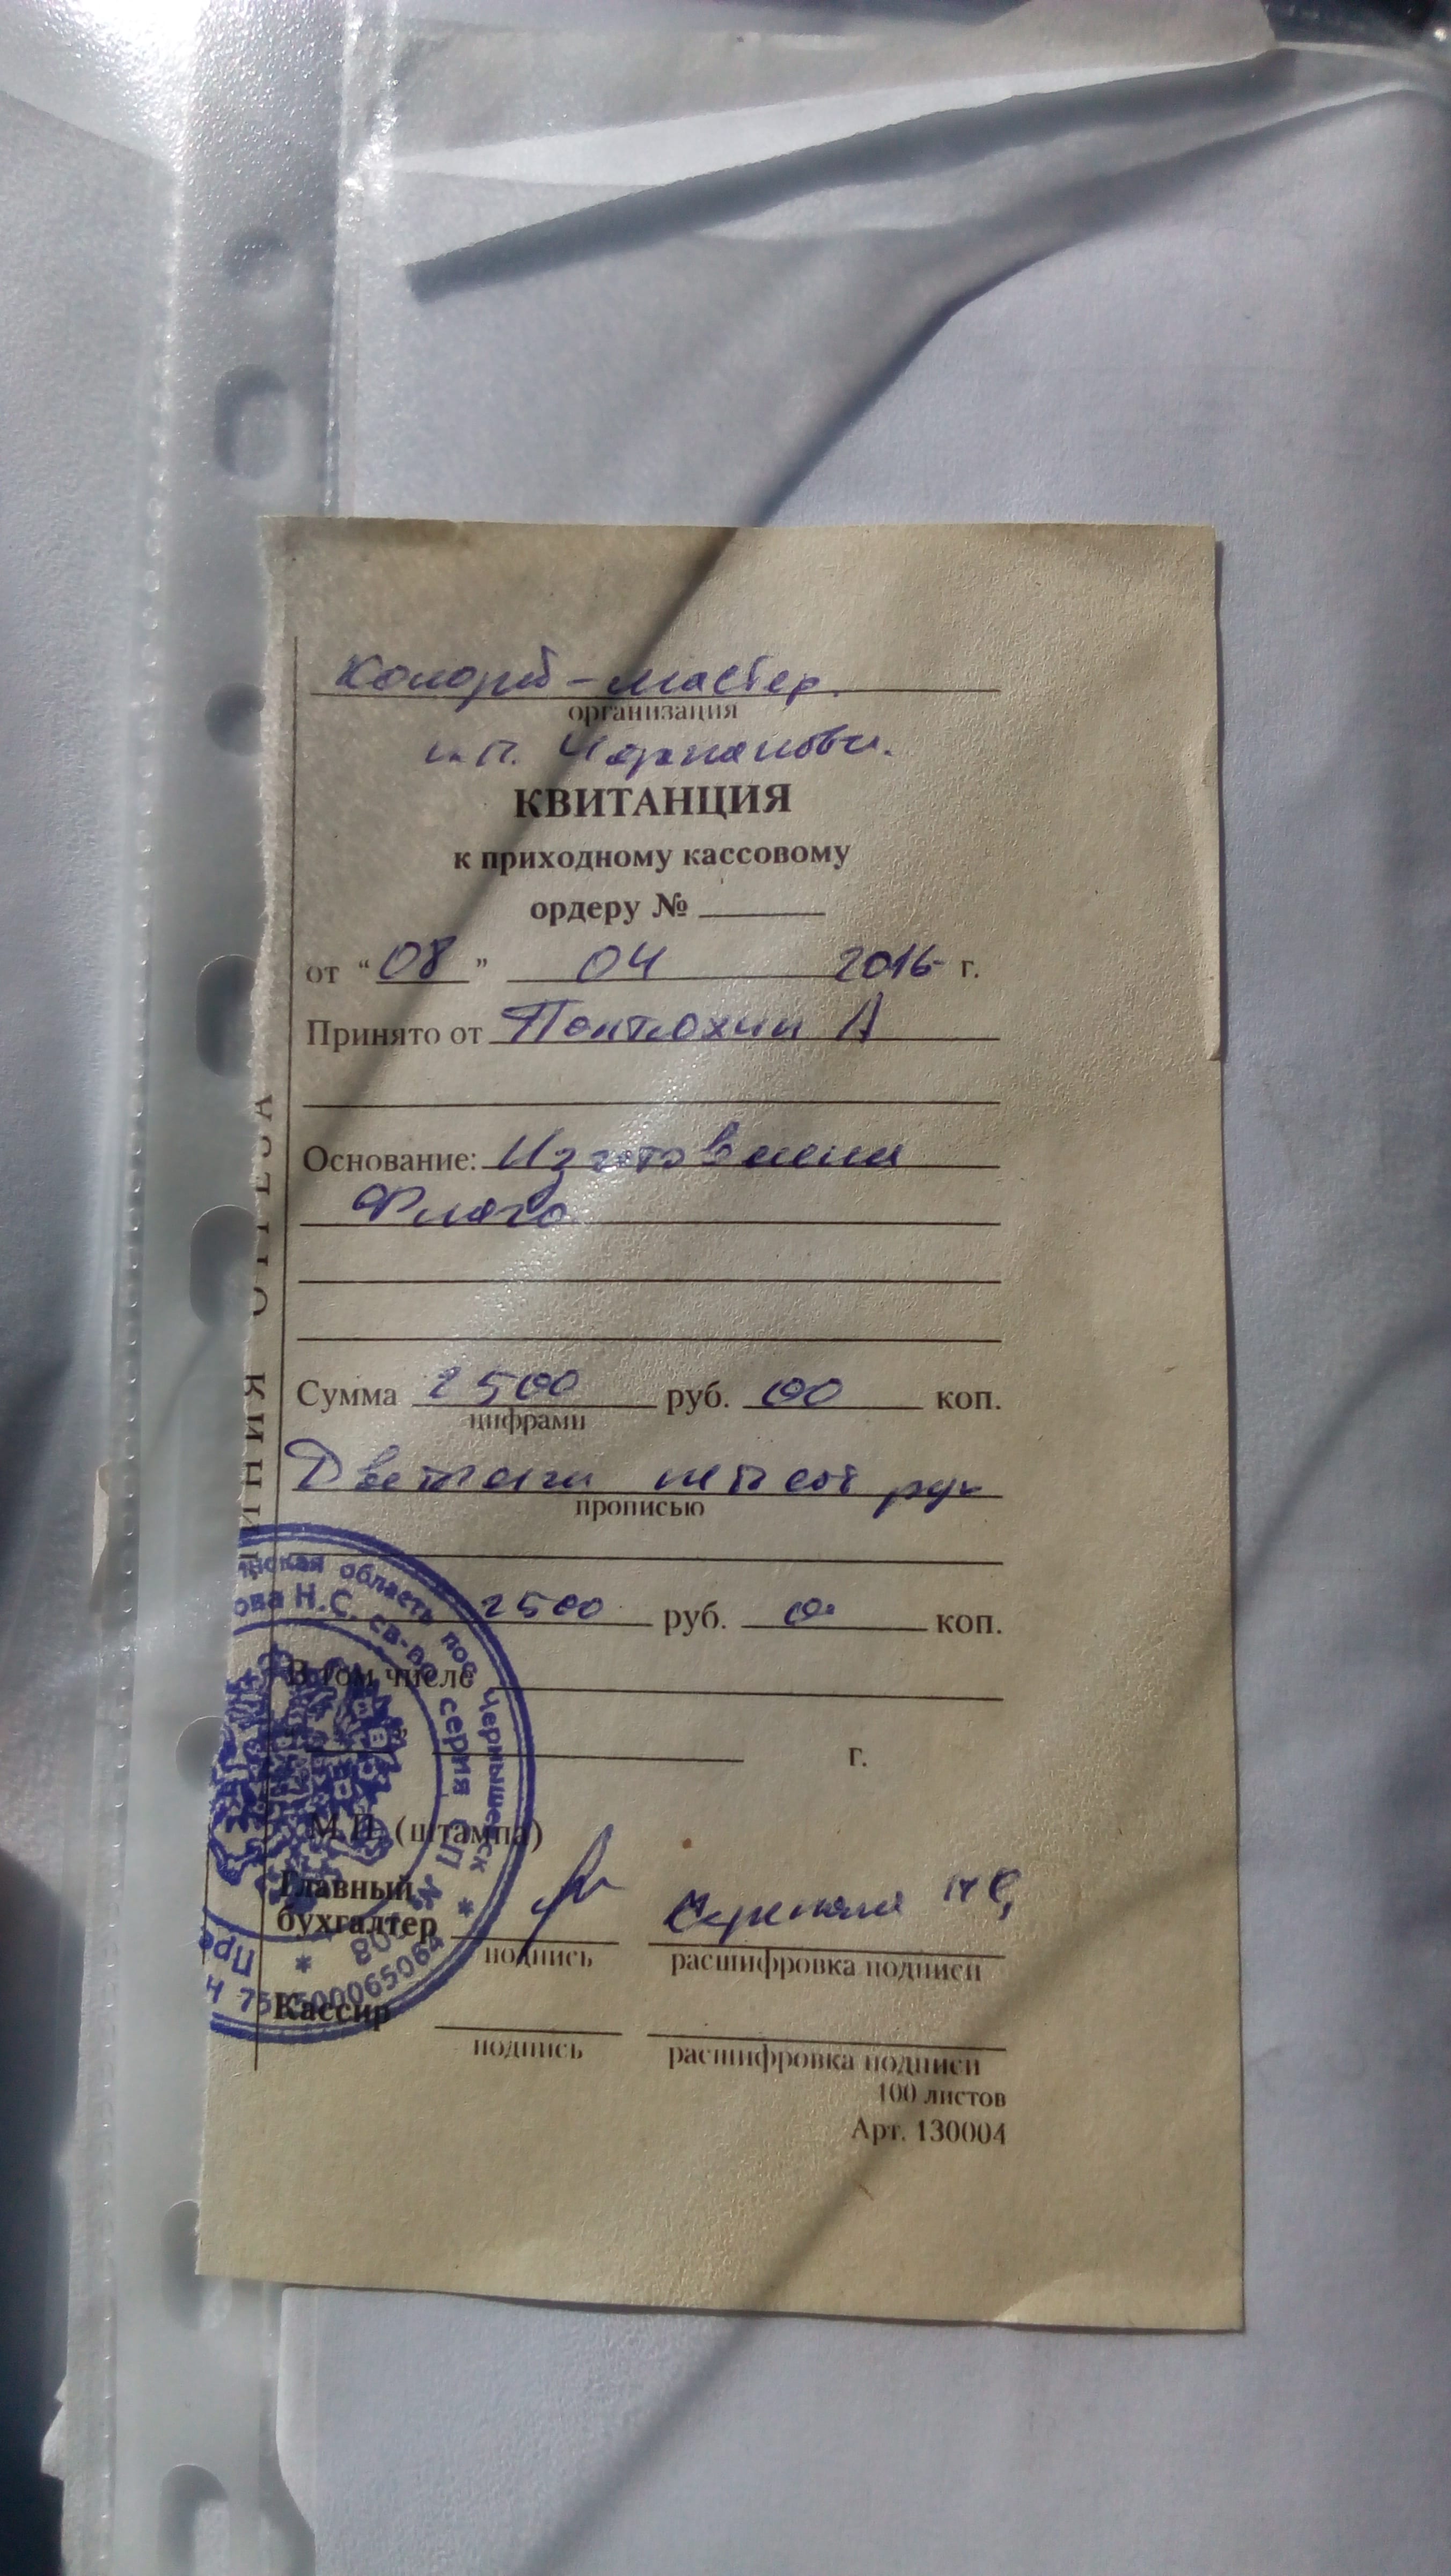 организация
КВИТАНЦИЯ
к приходному кассовому
ордеру №
от “08” 04 2016 г.
Принято от А
Основание: Изготовление
Флага
Сумма 2500 руб. 00 коп.
цифрами
Две тысячи пятьсот руб
прописью
2500 руб. 00 коп.
В том числе
г.
М.П. (штампа)
Главный
бухгалтер
подпись расшифровка подписи
Кассир
подпись расшифровка подписи
100 листов
Арт. 130004
ЛИНИЯ ОТРЕЗА
нская область пос Чернышевск
ова Н.С. св-во серия